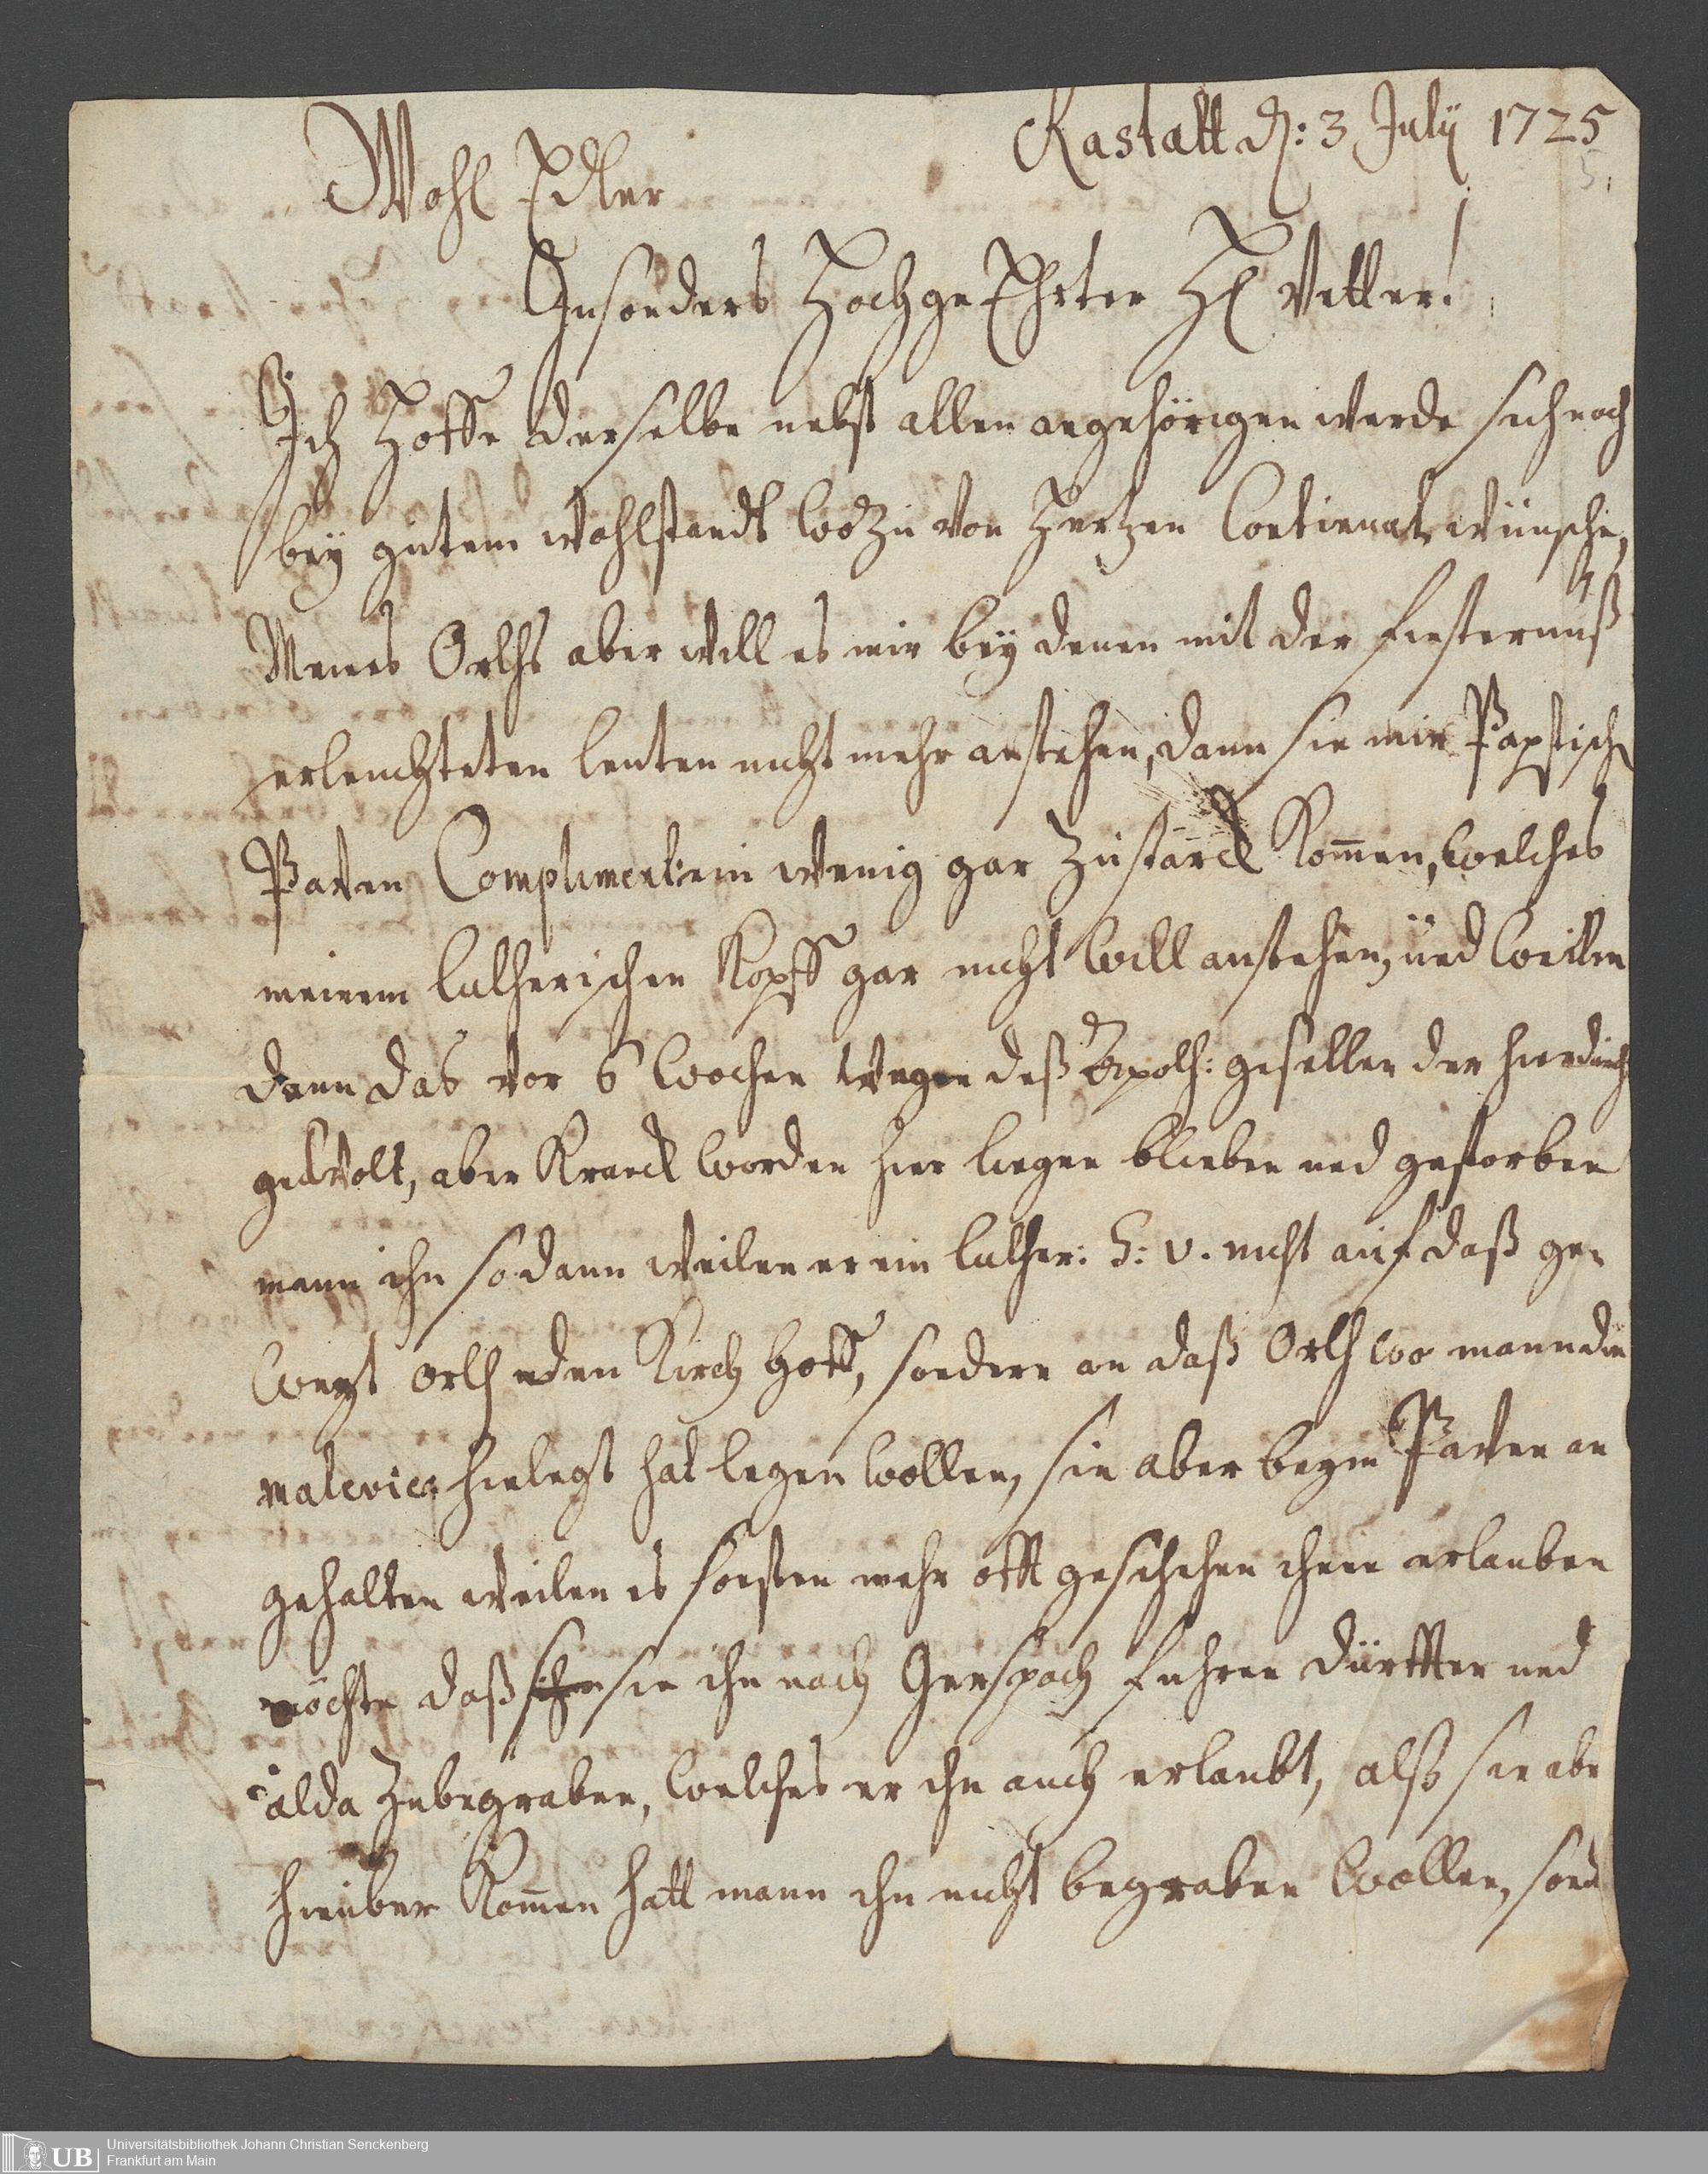 Rastatt d: 3 July 1725
5,
Wohl Edler
Insonders HochgeEhrter H Vetter!
Ich Hoffe derselbe nebst allen angehörigen werde sich noch
bey gutem wohlstandt wozu von Hertzen Continuat: wünsche,
Meines Orths aber will es mir bey denen mit der finsternuß
erleuchteten leuten nicht mehr anstehen, dann sie mir Papstisch
Paten Compliment: ein wenig gar zu starck kom̄en, welches
meinem lutherischen Kopff gar nicht will anstehen, und weilen
dann das vor 6 wochen wegen deß Apoth: gesellen der hierdurch
gewolt, aber Kranck worden hier liegen blieben und gestorben
mann ihn sodann weilen er ein luther: S: v. nicht auf daß ge-
weyt orth den Kirch hoff, sondern an daß Orth wo mann die
malevic: hinlegt hat legen wollen, sie aber beym an
gehalten weilen es sonsten mehr offt geschehen ihnen erlauben
möchte daß sie ihn nach Gerspach fuhren dürfften und
alda zu begraben, welches er ihn auch erlaubt, alß sie abr
hinüber kom̄en hatt mann ihn nicht begraben wollen, sond
UB
Universitätsbibliothek Johann Christian Senckenberg
Frankfurt am Main